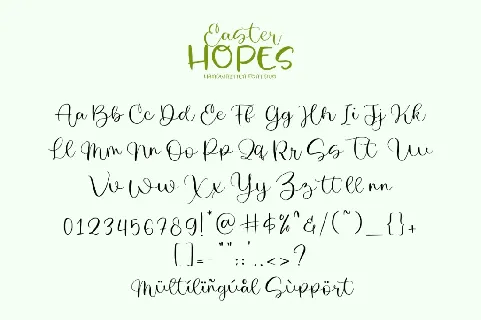 Easter
HOPES
Aa Bb Cc Dd Ee Ff Gg Hh Ii Jj Kk
Ll Mm Nn Oo Pp Qq Rr Ss Tt Uu
Vv Ww Xx Yy Zz tt ll nn
0123456789!*@#$%^&/(~)_{}+
[]=-""::'..<>?
Mültílïñgúâl Sùppört